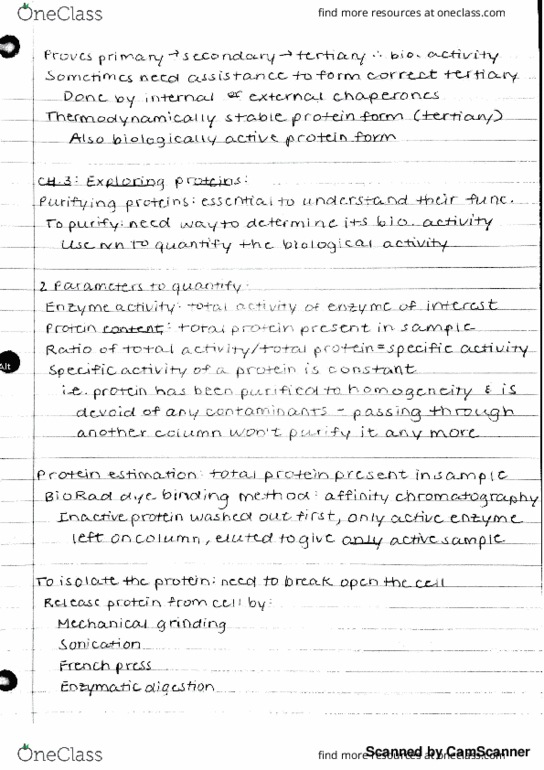 OneClass
find more resources at oneclass.com
Proves primary → secondary → tertiary ∴ bio. activity
Sometimes need assistance to form correct tertiary
Done by internal or external chaperones
Thermodynamically stable protein form (tertiary)
Also biologically active protein form
CH.3: Exploring proteins:
Purifying proteins: essential to understand their func.
To purify: need way to determine its bio. activity
Use to quantify the biological activity
2 Parameters to quantify:
Enzyme activity: total activity of enzyme of interest
Protein content: total protein present in sample
Ratio of total activity/total protein = specific activity
Alt
Specific activity of a protein is constant
i.e. protein has been purified to homogeneity & is
devoid of any contaminants - passing through
another column won't purify it any more
Protein estimation: total protein present in sample
BioRad dye binding method: affinity chromatography
Inactive protein washed out first, only active enzyme
left on column, eluted to give only active sample
To isolate the protein: need to break open the cell
Release protein from cell by:
Mechanical grinding
Sonication
French press
Enzymatic digestion
OneClass
find more resources at oneclass.com
Scanned by CamScanner